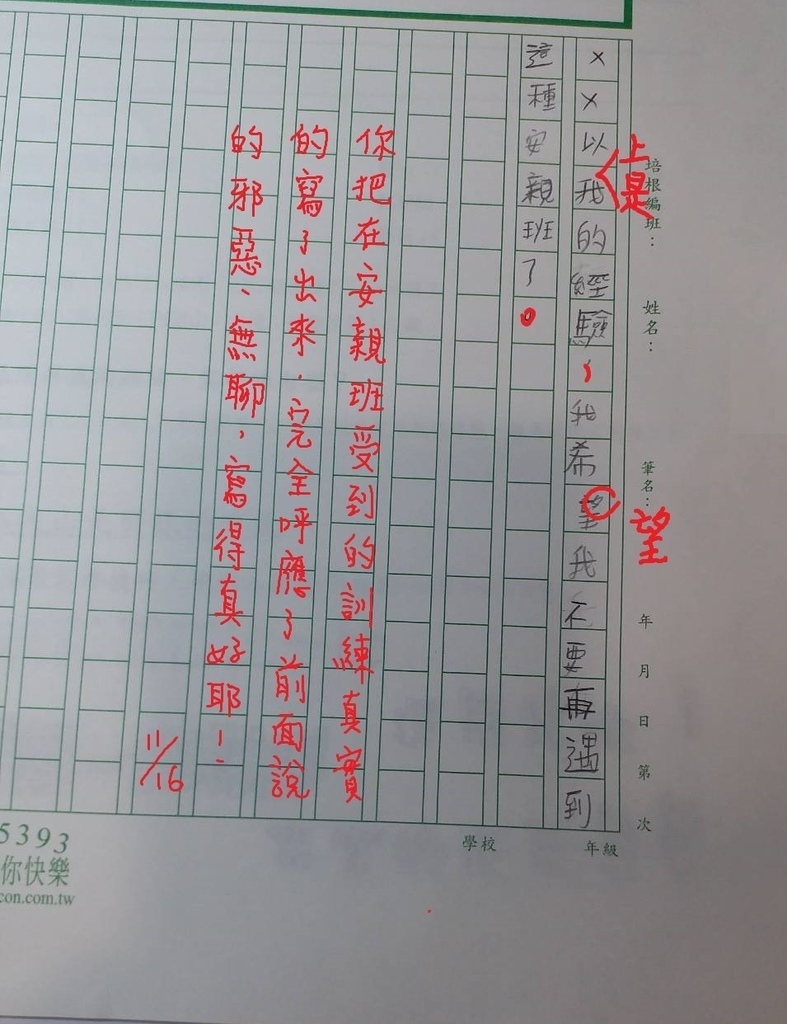 培根編班： 姓名： 筆名： 年 月 日 第 次
上是
望
××以我的經驗，我希望我不要再遇到
這種安親班了。
你把在安親班受到的訓練真實
的寫了出來，完全呼應了前面說
的邪惡、無聊，寫得真好耶！
11/16
學校 年級
5393
你快樂
con.com.tw